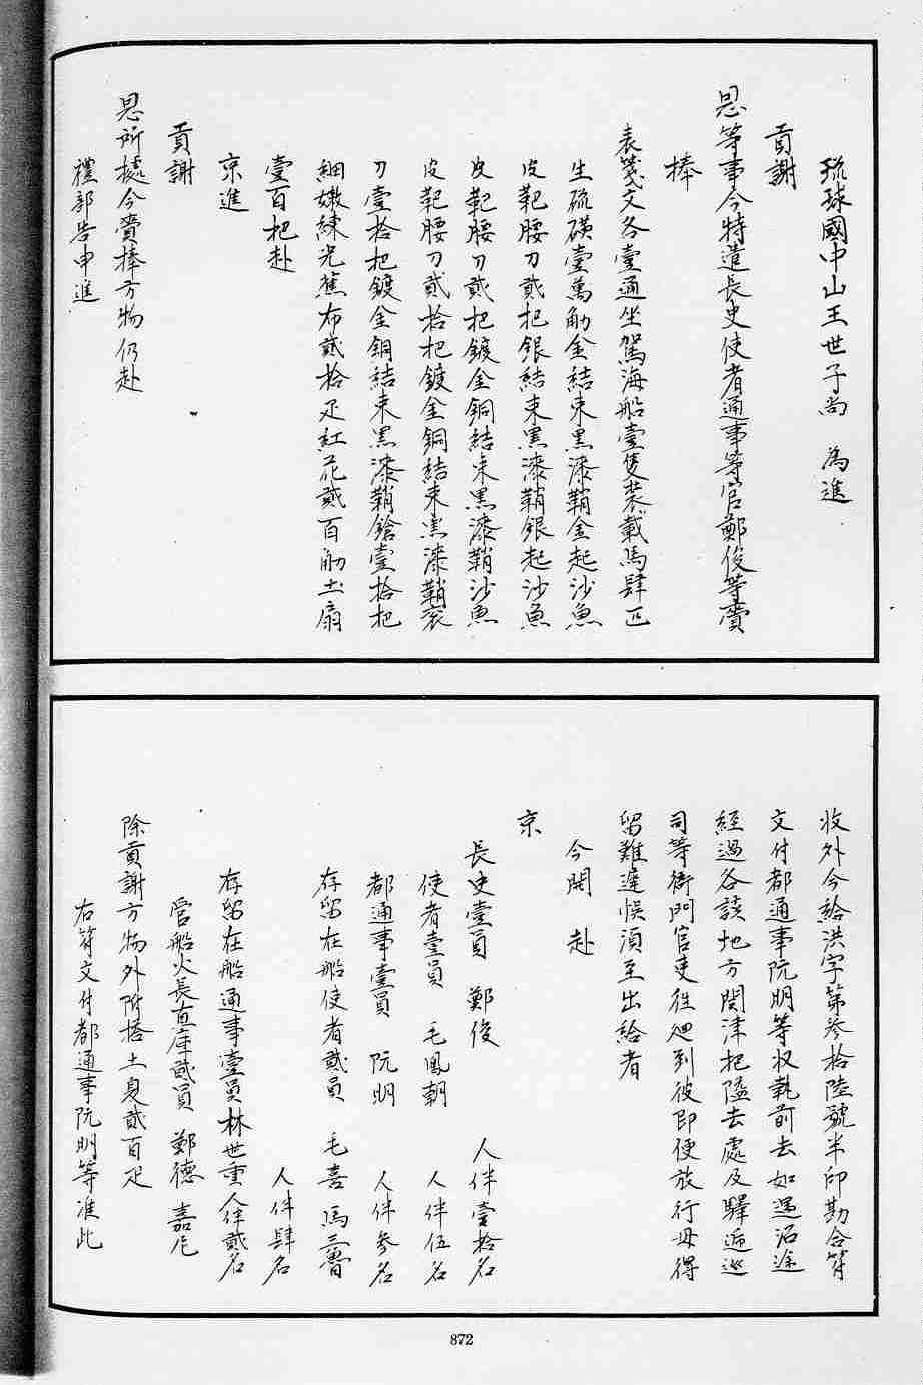 琉球國中山王世子尚　為進
貢謝
恩等事今特遣長史使者通事等官鄭俊等齎
捧
表箋文各壹通坐駕海船壹隻裝載馬肆匹
生硫磺壹萬觔金結束黑漆鞘金起沙魚
皮靶腰刀貳把銀結束黑漆鞘銀起沙魚
皮靶腰刀貳把鍍金銅結束黑漆鞘沙魚
皮靶腰刀貳拾把鍍金銅結束黑漆鞘袞
刀壹拾把鍍金銅結束黑漆鞘鎗壹拾把
細嫩練光蕉布貳拾疋紅花貳百觔土扇
壹百把赴
京進
貢謝
恩所據今齎捧方物仍赴
禮部告申進
收外今給洪字第參拾陸號半印勘合符
文付都通事阮明等收執前去如遇沿途
經過各該地方関津把隘去處及驛逓巡
司等衙門官吏徃廻到彼即便放行毋得
留難遲悞湏至出給者
今開　赴
京
長史壹員　鄭俊　　人伴壹拾名
使者壹員　毛鳳朝　人伴伍名
都通事壹員　阮明　人伴參名
存留在船使者貳員　毛喜　馮三魯
人伴肆名
存留在船通事壹員林世重人伴貳名
管船火長直庫貳員　鄭德　嘉尼
除貢謝方物外附搭土夏貳百疋
右符文付都通事阮明等准此
872